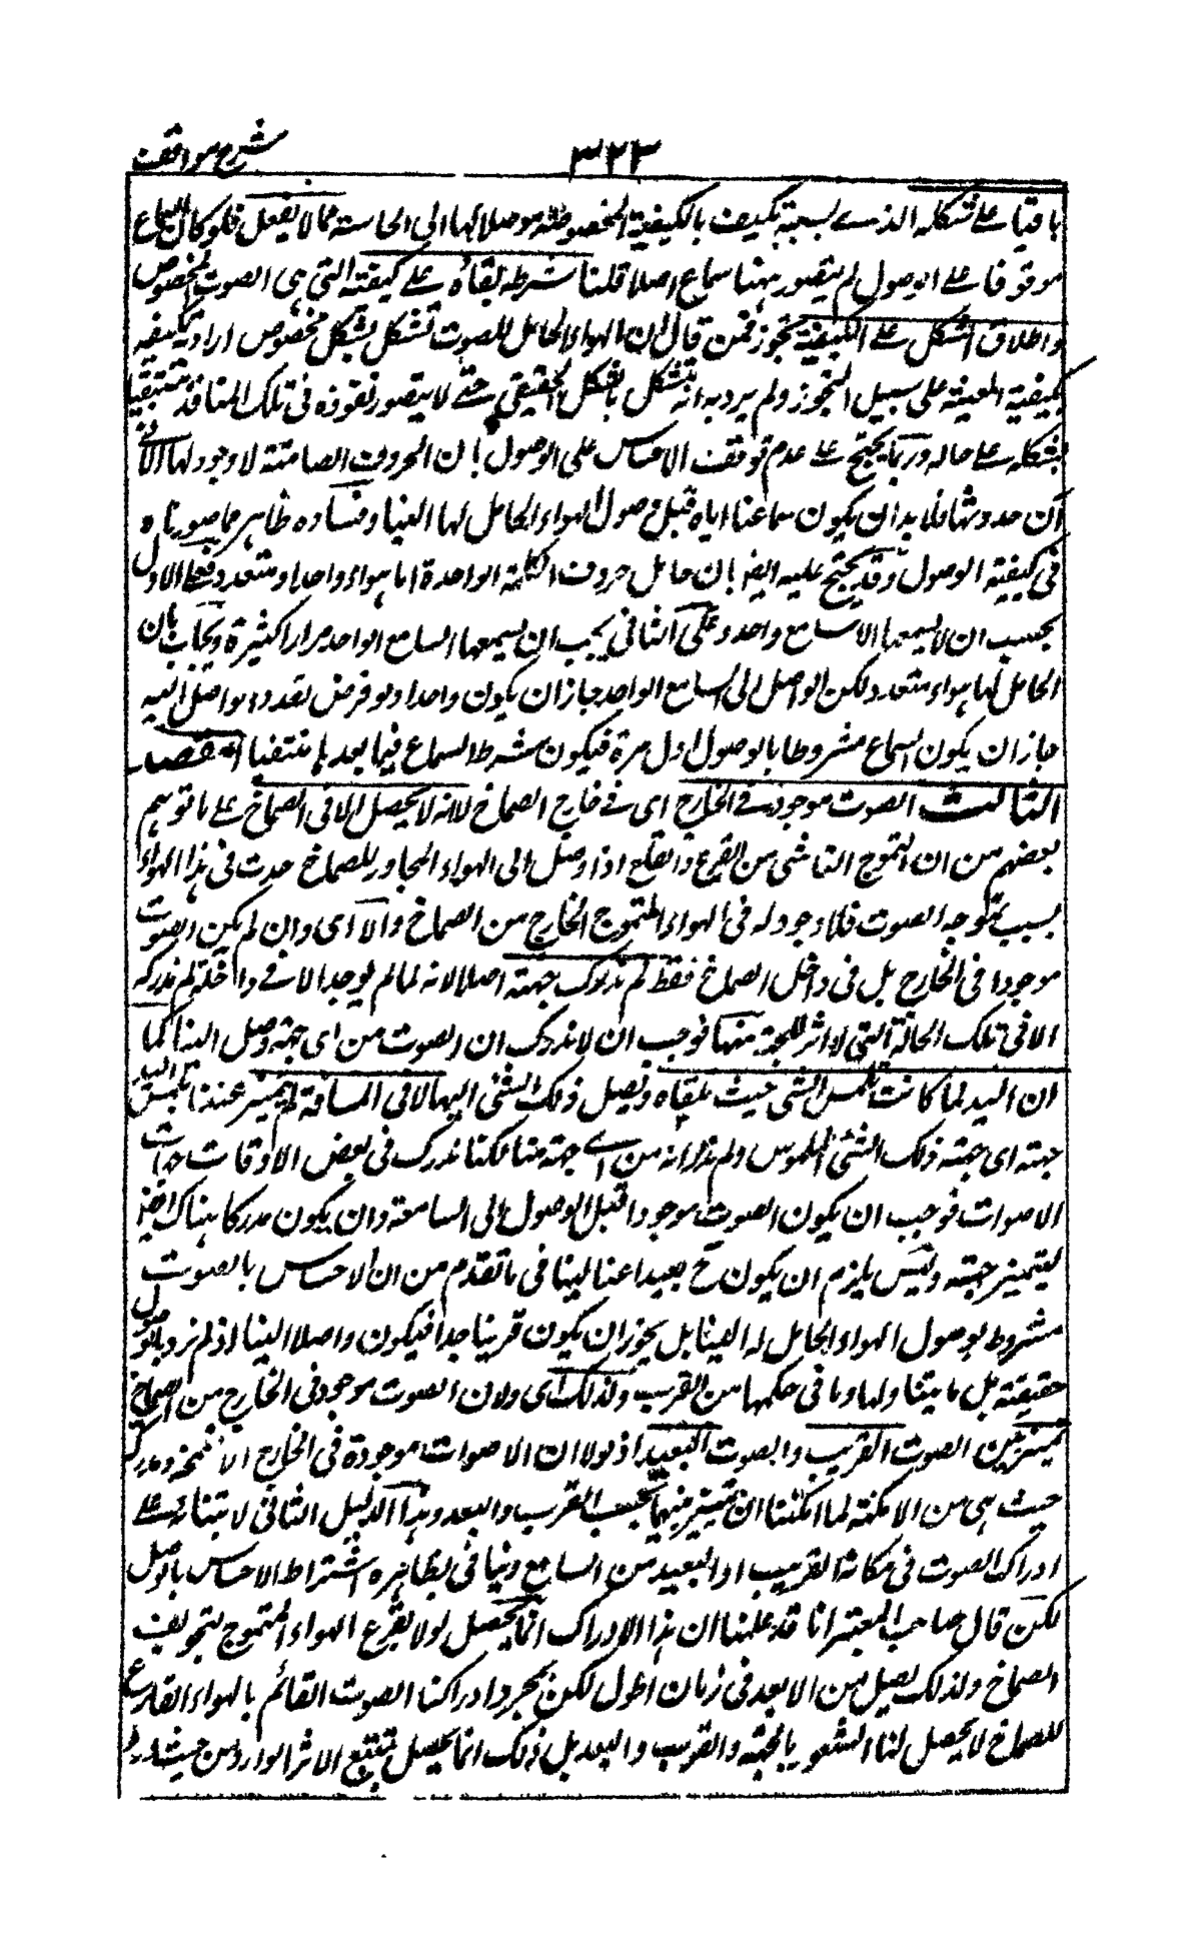 شرح مواقف
٣٢٣
باقيا على تشكله الذى بسببه تكيف بالكيفية المخصوصة موصلا لها الى الحاسة مما لا يعقل فلو كان السماع
موقوفا على الوصول لم يتصور ههنا سماع اصلا قلنا شرطه بقاؤه على كيفيته التى هى الصوت المخصوص
واطلاق الشكل على الكيفية تجوز فمن قال ان الهواء الحامل للصوت تشكل بشكل مخصوص اراد به تكيفه
بكيفية المعينة على سبيل التجوز ولم يرد به انه تشكل بالشكل الحقيقى حتى لا يتصور نفوذه فى تلك المنافذ
بشكله على حاله وربما يحتج على عدم توقف الاحساس على الوصول بان الحروف الصامتة لا وجود لها الا فى
آن حدوثها فلا بد ان يكون سماعنا اياه قبل وصول الهواء الحامل لها الينا وفساده ظاهر مما صورناه
فى كيفية الوصول وقد يحتج عليه ايضا بان حامل حروف الكلمة الواحدة اما هواء واحد او متعدد فعلى الاول
يجب ان لا يسمعها الا سامع واحد وعلى الثانى يجب ان يسمعها السامع الواحد مرارا كثيرة ويجاب بان
الحامل لها هواء متعدد لكن الواصل الى السامع الواحد جاز ان يكون واحدا ولو فرض تعدد الواصل اليه
جاز ان يكون السماع مشروطا بالوصول اول مرة فيكون شرط السماع فيما بعدها منتفيا المقصد
الثالث الصوت موجود فى الخارج اى فى خارج الصماخ لا انه لا يحصل الا فى الصماخ على ما توهم
بعضهم من ان التموج الناشى من القرع والقلع اذا وصل الى الهواء المجاور للصماخ حدث فى هذا الهواء
بسبب تموجه الصوت فلا وجود له فى الهواء المتموج الخارج من الصماخ والا اى وان لم يكن الصوت
موجودا فى الخارج بل فى داخل الصماخ فقط لم ندرك جهته اصلا لانه لما لم يوجد الا فى داخله لم ندركه
الا فى تلك الحالة التى لا اثر للجهة منها فوجب ان لا ندرك ان الصوت من اى جهة وصل الينا كما
ان اليد لما كانت تلمس الشئ حيث تلقاه ويصل ذلك الشئ اليها لا فى المسافة لم يتميز عندنا بلمس اليد
جهته اى جهة ذلك الشئ الملموس ولم ندر انه من اى جهة متنا لكنا ندرك فى بعض الاوقات جهات
الاصوات فوجب ان يكون الصوت موجودا قبل الوصول الى السامعة وان يكون مدركا هناك ايضا
ليتميز جهته وليس يلزم ان يكون ح بعيدا عنا لينافى ما تقدم من ان الاحساس بالصوت
مشروط بوصول الهواء الحامل له الينا بل يجوز ان يكون قريبا جدا فيكون واصلا الينا اذ لم نرد بالوصول
حقيقته بل ما يتناولها وما فى حكمها من القرب ولذلك اى ولان الصوت موجود فى الخارج من الصماخ
نميز بين الصوت القريب والصوت البعيد اذ لولا ان الاصوات موجودة فى الخارج الاصمخة ومدركة
حيث هى من الامكنة لما امكننا ان نميز بينهما بحسب القرب والبعد وهذا الدليل الثانى لابتنائه على
ادراك الصوت فى مكانه القريب او البعيد من السامع ينافى بظاهره اشتراط الاحساس بالوصول
لكن قال صاحب المعتبر انا قد علمنا ان هذا الادراك انما يحصل اولا بقرع الهواء المتموج لتجويف
الصماخ ولذلك يصل من الابعد فى زمان اطول لكن بمجرد ادراكنا الصوت القائم بالهواء القارع
للصماخ لا يحصل لنا الشعور بالجهة والقرب والبعد بل ذلك انما يحصل بتتبع الاثر الوارد من حيث ورد